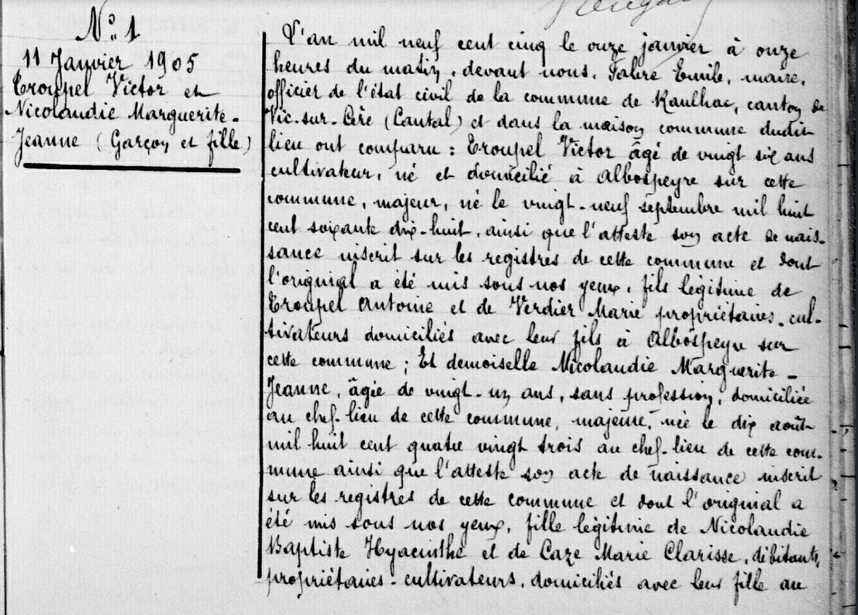 N° 1
11 Janvier 1905
Troupel Victor et
Nicolaudie Marguerite-
Jeanne (Garçon et fille)
L'an mil neuf cent cinq le onze janvier à onze
heures du matin, devant nous, Fabre Emile, maire,
officier de l'état civil de la commune de Raulhac, canton de
Vic-sur-Cère (Cantal) et dans la maison commune dudit
lieu ont comparu : Troupel Victor âgé de vingt six ans
cultivateur, né et domicilié à Albospeyre sur cette
commune, majeur, né le vingt-neuf septembre mil huit
cent soixante dix-huit, ainsi que l'atteste son acte de nais-
sance inscrit sur les registres de cette commune et dont
l'original a été mis sous nos yeux, fils légitime de
Troupel Antoine et de Verdier Marie propriétaires-cul-
tivateurs domiciliés avec leur fils à Albospeyre sur
cette commune ; Et demoiselle Nicolaudie Marguerite-
Jeanne, âgée de vingt-un ans, sans profession, domiciliée
au chef-lieu de cette commune, majeure, née le dix août
mil huit cent quatre vingt trois au chef-lieu de cette com-
mune ainsi que l'atteste son acte de naissance inscrit
sur les registres de cette commune et dont l'original a
été mis sous nos yeux, fille légitime de Nicolaudie
Baptiste Hyacinthe et de Caze Marie Clarisse, débitants,
propriétaires-cultivateurs, domiciliés avec leur fille au